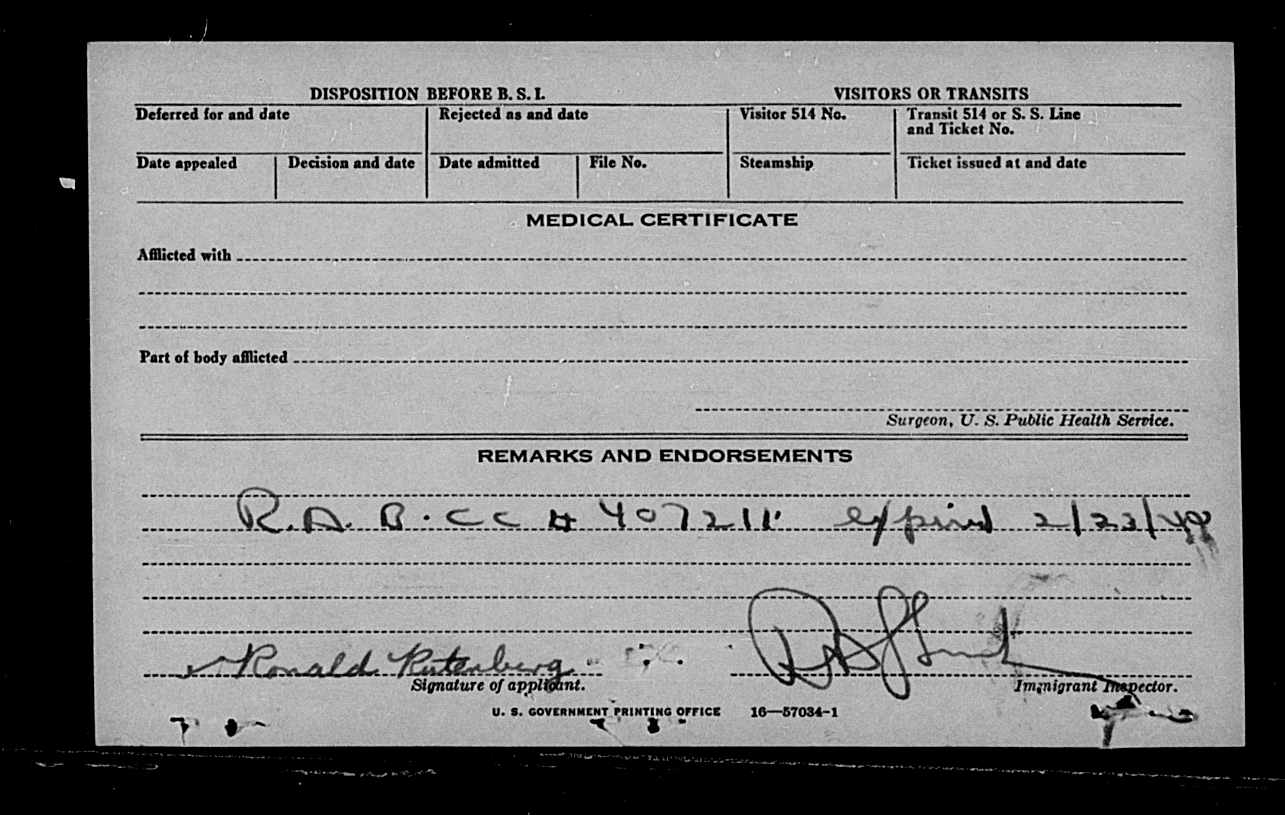 DISPOSITION BEFORE B. S. I. VISITORS OR TRANSITS
Deferred for and date Rejected as and date Visitor 514 No. Transit 514 or S. S. Line
and Ticket No.
Date appealed Decision and date Date admitted File No. Steamship Ticket issued at and date
MEDICAL CERTIFICATE
Afflicted with
Part of body afflicted
Surgeon, U. S. Public Health Service.
REMARKS AND ENDORSEMENTS
R.A. B.CC # 407211 expired 2/23/49
Ronald Rutenberg
Signature of applicant. Immigrant Inspector.
U. S. GOVERNMENT PRINTING OFFICE 16—57034-1